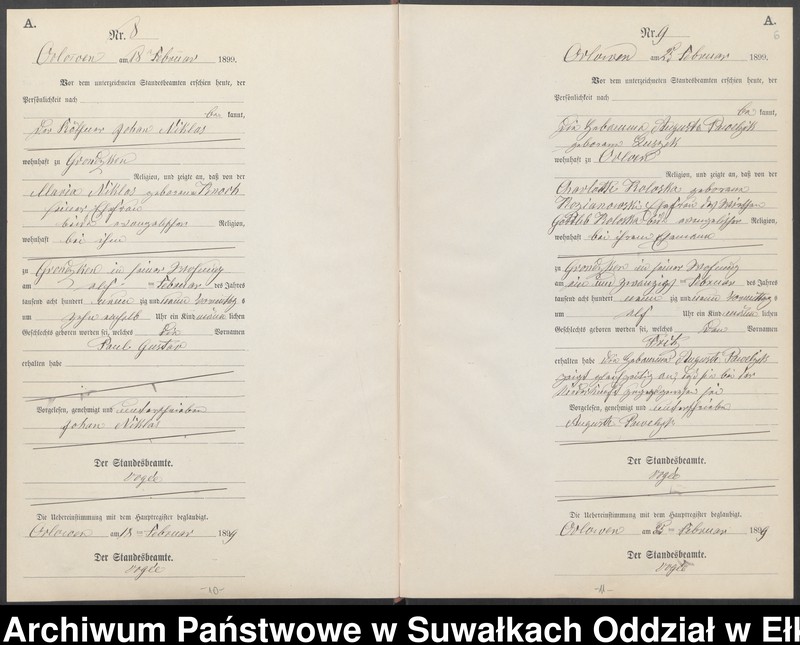 A.
Nr. 8
Orlowen am 18 Februar 1899.
Vor dem unterzeichneten Standesbeamten erschien heute, der
Persönlichkeit nach
be kannt,
der Köthner Johan Niklas
wohnhaft zu Grondzken
Religion, und zeigte an, daß von der
Maria Niklas geborene
seiner Ehefrau
beide evangelischer Religion,
wohnhaft bei ihm
zu Grondzken in seiner Wohnung
am elf Februar des Jahres
tausend acht hundert neun zig und neun Vormittags
um zehn einhalb Uhr ein Kind männ lichen
Geschlechts geboren worden sei, welches die Vornamen
Paul Gustav
erhalten habe
Vorgelesen, genehmigt und unterschrieben
Johan Niklas
Der Standesbeamte.
Vogel
Die Uebereinstimmung mit dem Hauptregister beglaubigt.
Orlowen am 18 ten Februar 1899
Der Standesbeamte.
Vogel
-10-
A.
6
Nr. 9
Orlowen am Februar 1899.
Vor dem unterzeichneten Standesbeamten erschien heute, der
Persönlichkeit nach
be kannt,
die Hebamme Auguste
geborene
wohnhaft zu Orlowen
Religion, und zeigte an, daß von der
Charlotte Koloska geborene
Ehefrau des
Gottlieb Koloska beide evangelischer Religion,
wohnhaft bei ihrem Ehemann
zu Grondzken in seiner Wohnung
am ein und zwanzigsten Februar des Jahres
tausend acht hundert neun zig und neun Vormittags
um elf Uhr ein Kind männ lichen
Geschlechts geboren worden sei, welches den Vornamen
Fritz
erhalten habe die Hebamme Auguste
zeigt gleichzeitig an, daß sie bei der
Niederkunft zugegen gewesen sei
Vorgelesen, genehmigt und unterschrieben
Auguste
Der Standesbeamte.
Vogel
Die Uebereinstimmung mit dem Hauptregister beglaubigt.
Orlowen am Februar 1899
Der Standesbeamte.
Vogel
-11-
Archiwum Państwowe w Suwałkach Oddział w Ełk